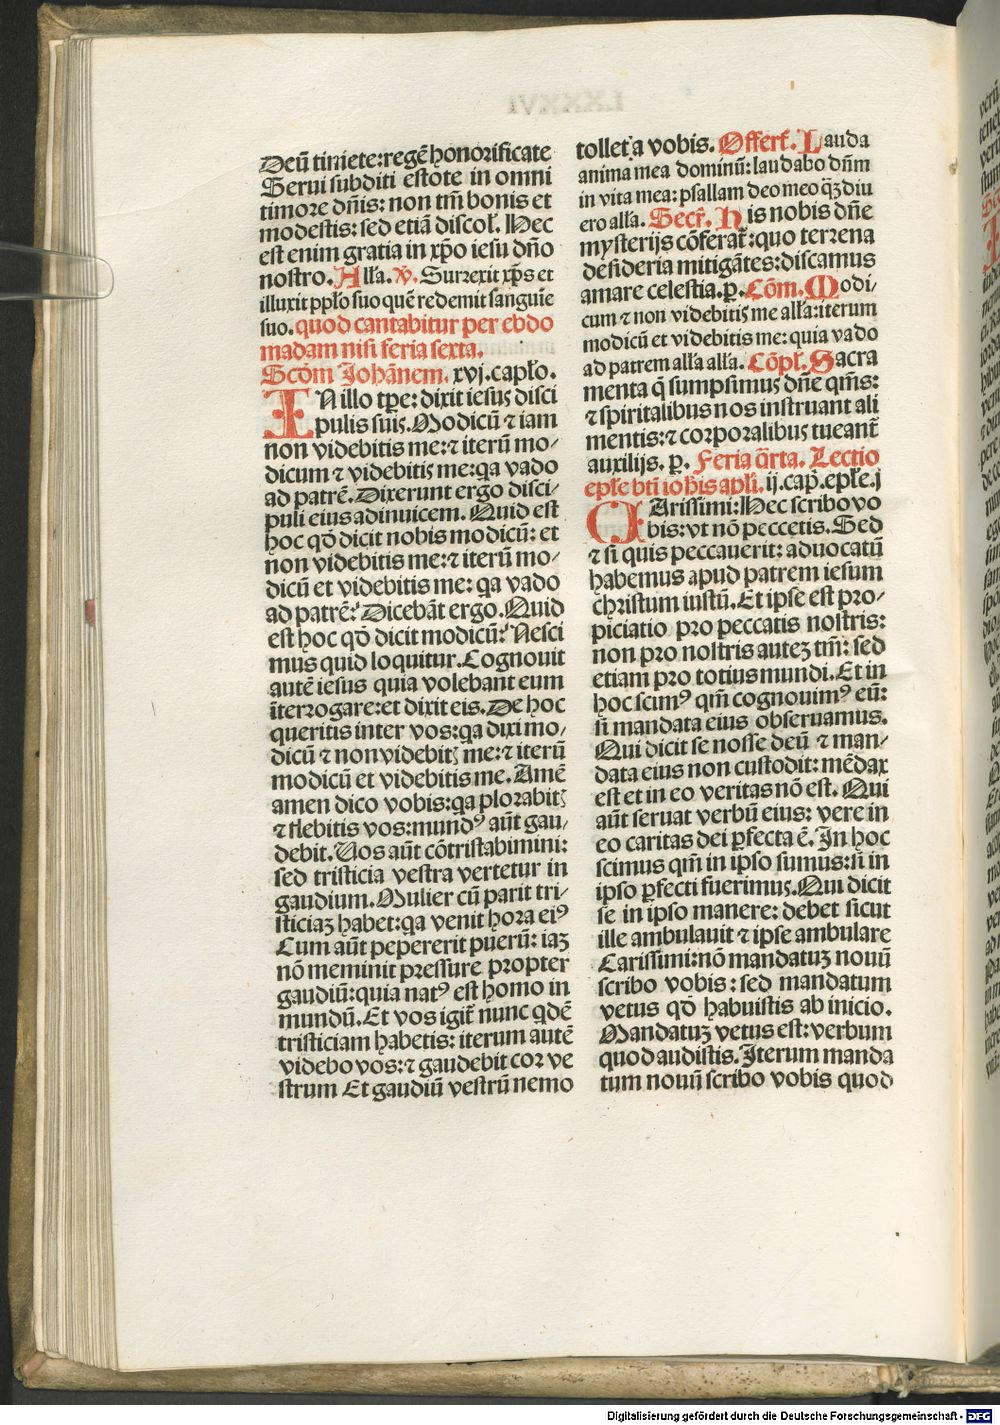 Deū timete: regē honorificate
Serui subditi estote in omni
timore dn̄is: non tm̄ bonis et
modestis: sed etiā discol'. Hec
est enim gratia in xp̄o iesu dn̄o
nostro. All'a. v̄. Surrexit xp̄s et
illuxit pp̄lo suo quē redemit sanguīe
suo. quod cantabitur per ebdo
madam nisi feria sexta.
Scd̄m Johānem. xvj. capl̄o.
IN illo tp̄e: dixit iesus disci
pulis suis. Modicū ⁊ iam
non videbitis me: ⁊ iterū mo⸗
dicum ⁊ videbitis me: qa vado
ad patrē. Dixerunt ergo disci⸗
puli eius adinuicem. Quid est
hoc qd̄ dicit nobis modicū: et
non videbitis me: ⁊ iterū mo⸗
dicū et videbitis me: qa vado
ad patrē? Dicebāt ergo. Quid
est hoc qd̄ dicit modicū? Nesci
mus quid loquitur. Cognouit
autē iesus quia volebant eum
īterrogare: et dixit eis. De hoc
queritis inter vos: qa dixi mo⸗
dicū ⁊ non videbitꝭ me: ⁊ iterū
modicū et videbitis me. Amē
amen dico vobis: qa plorabitꝭ
⁊ flebitis vos: mundꝰ aūt gau⸗
debit. Vos aūt cōtristabimini:
sed tristicia vestra vertetur in
gaudium. Mulier cū parit tri⸗
sticiaꝫ habet: qa venit hora eiꝰ
Cum aūt pepererit puerū: iaꝫ
nō meminit pressure propter
gaudiū: quia natꝰ est homo in
mundū. Et vos igit̄ nunc qdē
tristiciam habetis: iterum autē
videbo vos: ⁊ gaudebit cor ve
strum Et gaudiū vestrū nemo
tollet a vobis. Offert̄. Lauda
anima mea dominū: laudabo dn̄m
in vita mea: psallam deo meo qꝫdiu
ero all'a. Secr̄. His nobis dn̄e
mysterijs cōferat̄: quo terrena
desideria mitigātes: discamus
amare celestia. p. Cōm. Modi⸗
cum ⁊ non videbitis me all'a: iterum
modicū et videbitis me: quia vado
ad patrem all'a all'a. Cōpl̄. Sacra
menta q̄ sumpsimus dn̄e qm̄s:
⁊ spiritalibus nos instruant ali
mentis: ⁊ corporalibus tueant̄
auxilijs. p. Feria q̄rta. Lectio
ep̄le bt̄i ioh̄is apl̄i. ij. cap̄. ep̄le. j
CArissimi: Hec scribo vo
bis: vt nō peccetis. Sed
⁊ si quis peccauerit: aduocatū
habemus apud patrem iesum
christum iustū. Et ipse est pro⸗
piciatio pro peccatis nostris:
non pro nostris autez tm̄: sed
etiam pro totius mundi. Et in
hoc scimꝰ qm̄ cognouimꝰ eū:
si mandata eius obseruamus.
Qui dicit se nosse deū ⁊ man⸗
data eius non custodit: mēdax
est et in eo veritas nō est. Qui
aūt seruat verbū eius: vere in
eo caritas dei ꝑfecta ē. In hoc
scimus qm̄ in ipso sumus: si in
ipso ꝑfecti fuerimus. Qui dicit
se in ipso manere: debet sicut
ille ambulauit ⁊ ipse ambulare
Carissimi: nō mandatuꝫ nouū
scribo vobis: sed mandatum
vetus qd̄ habuistis ab inicio.
Mandatuꝫ vetus est: verbum
quod audistis. Iterum manda
tum nouū scribo vobis quod
Digitalisierung gefördert durch die Deutsche Forschungsgemeinschaft - DFG